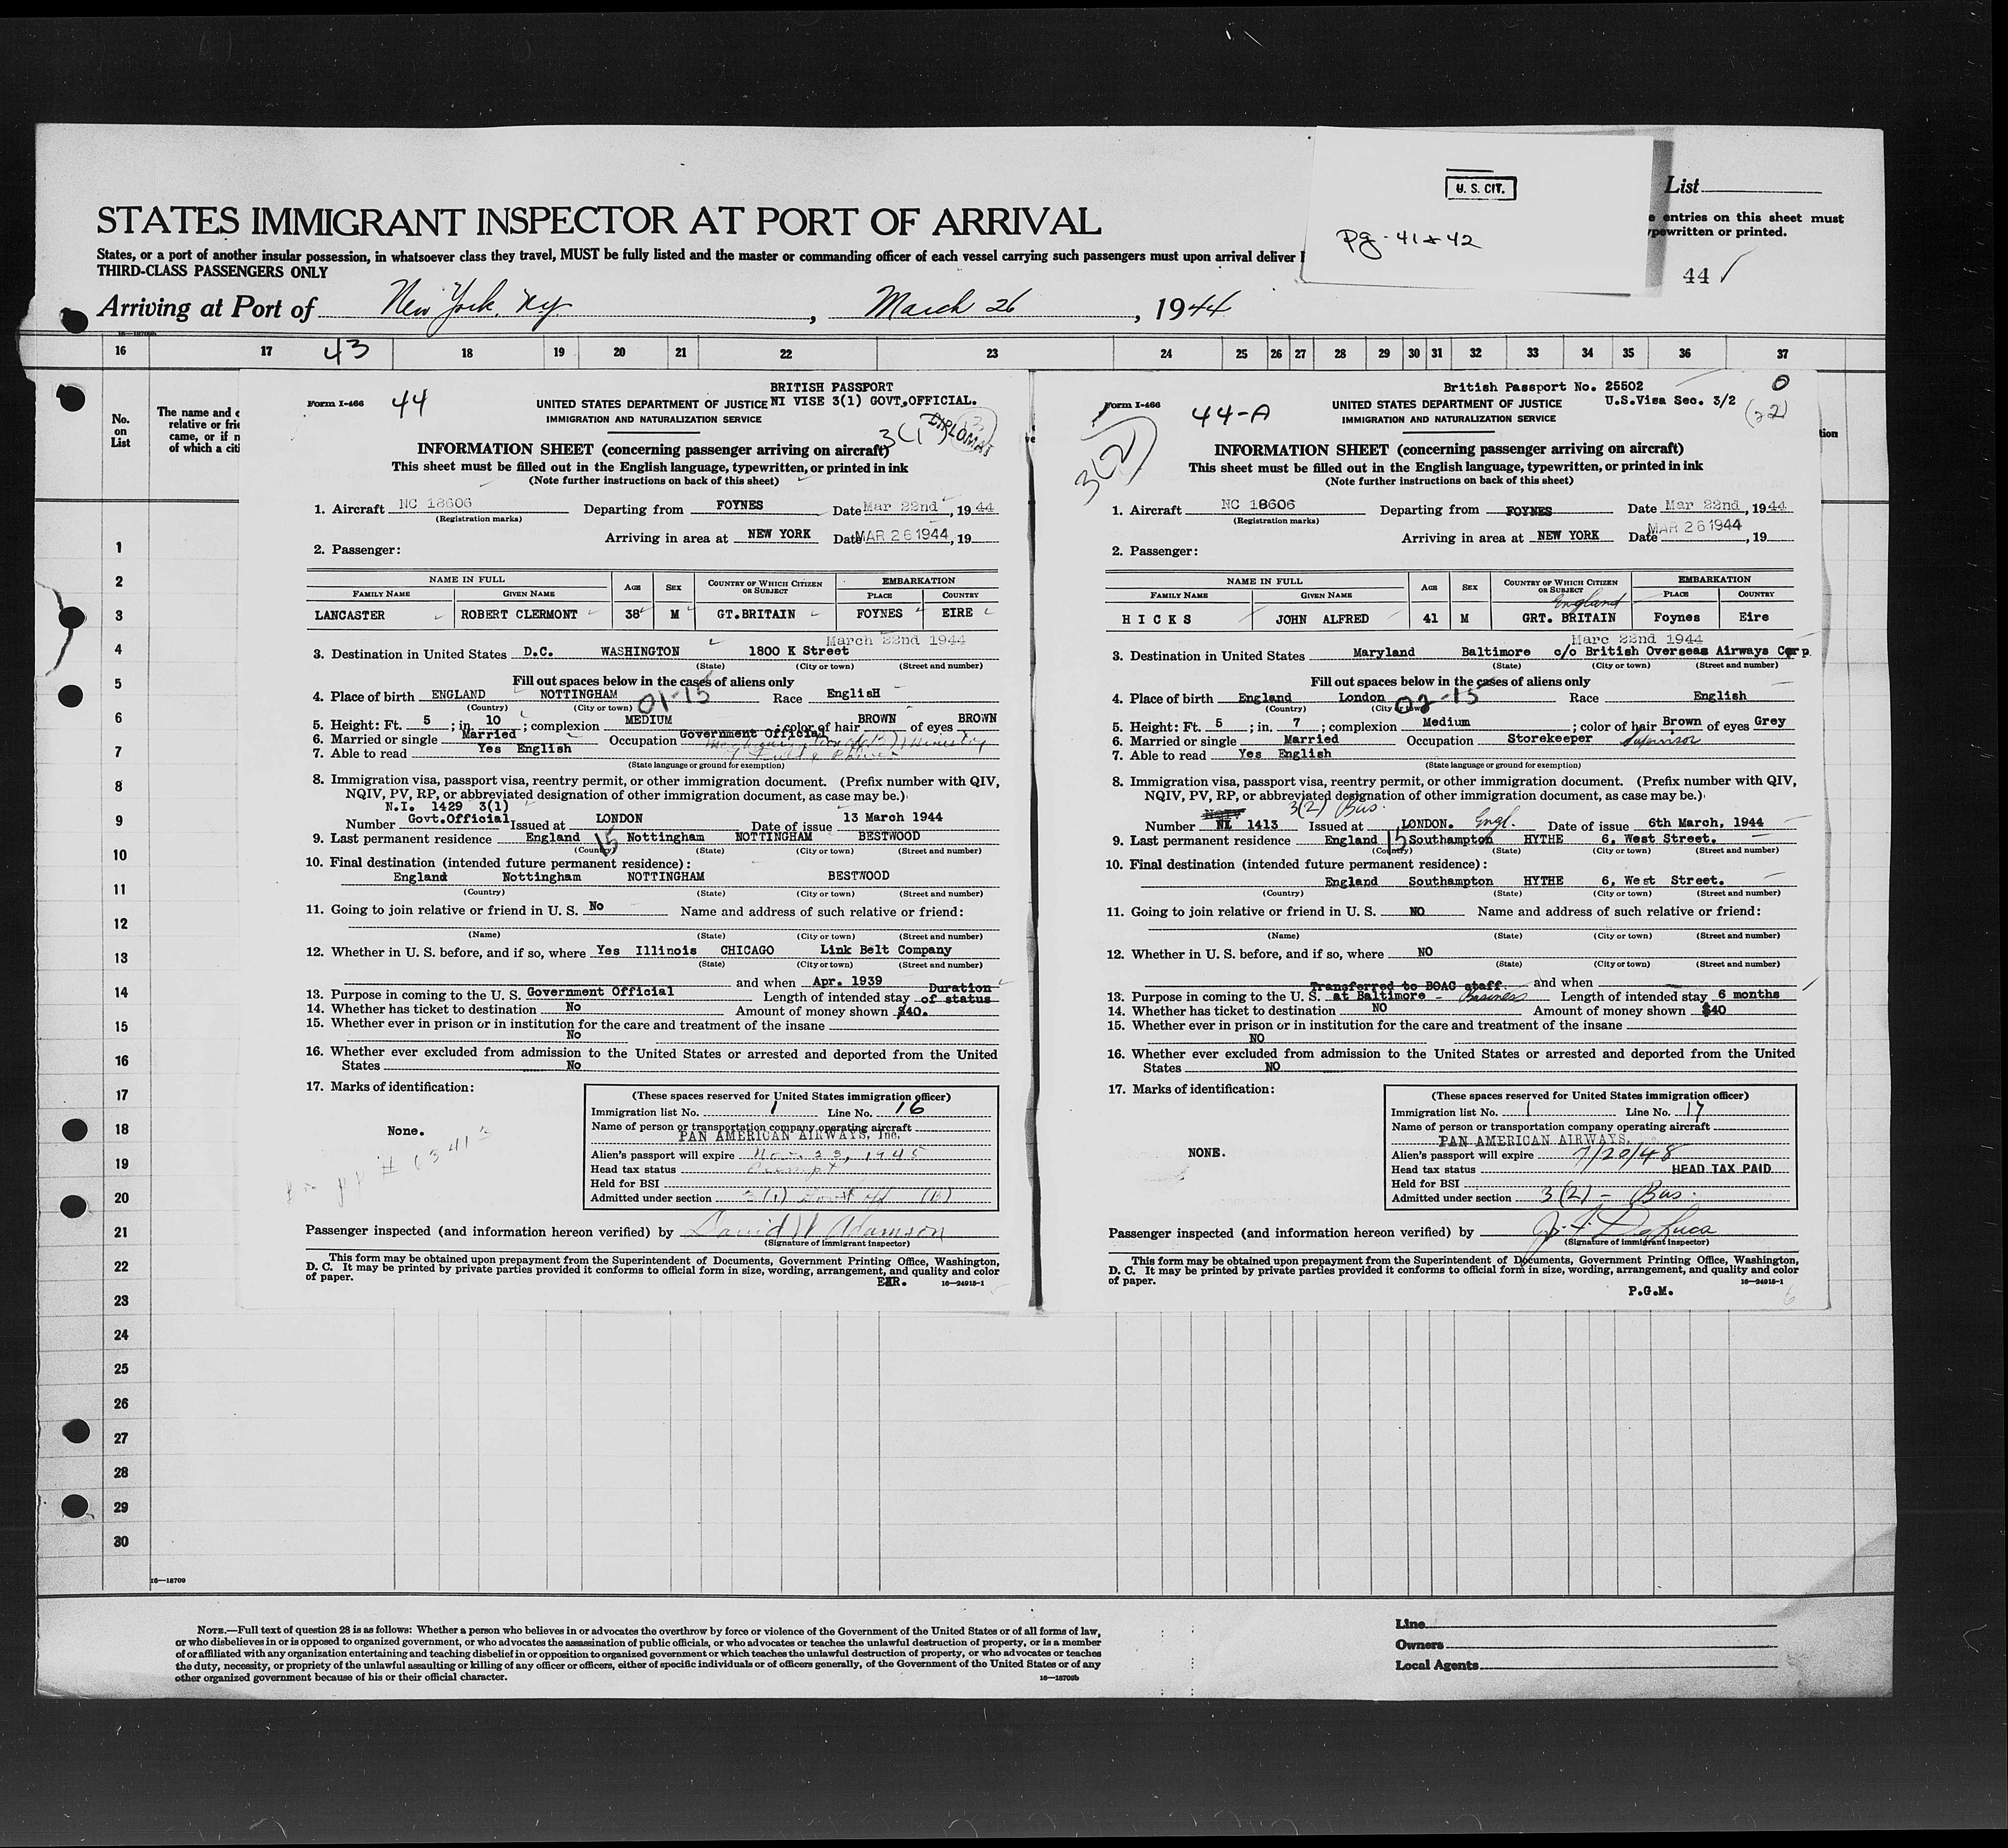 U. S. CIT.
Pg - 41 + 42
List
STATES IMMIGRANT INSPECTOR AT PORT OF ARRIVAL
e entries on this sheet must
ypewritten or printed.
States, or a port of another insular possession, in whatsoever class they travel, MUST be fully listed and the master or commanding officer of each vessel carrying such passengers must upon arrival deliver
THIRD-CLASS PASSENGERS ONLY
44 ✓
Arriving at Port of New York, N.Y. , March 26 , 1944
16 17 43 18 19 20 21 22 23 24 25 26 27 28 29 30 31 32 33 34 35 36 37
No. on List
The name and c
relative or frie
came, or if n
of which a citi
tion
1
2
3
4
5
6
7
8
9
10
11
12
13
14
15
16
17
18
19
20
21
22
23
24
25
26
27
28
29
30
16—18709
BRITISH PASSPORT
Form I-466 44 UNITED STATES DEPARTMENT OF JUSTICE NI VISE 3(1) GOVT.OFFICIAL.
IMMIGRATION AND NATURALIZATION SERVICE
3(1) DIPLOMAT
INFORMATION SHEET (concerning passenger arriving on aircraft)
This sheet must be filled out in the English language, typewritten, or printed in ink
(Note further instructions on back of this sheet)
1. Aircraft NC 18606 Departing from FOYNES Date Mar 22nd, 1944
(Registration marks)
Arriving in area at NEW YORK Date MAR 26 1944, 19
2. Passenger:
NAME IN FULL AGE SEX COUNTRY OF WHICH CITIZEN OR SUBJECT EMBARKATION
FAMILY NAME GIVEN NAME PLACE COUNTRY
LANCASTER ROBERT CLERMONT 38 M GT.BRITAIN FOYNES EIRE
March 22nd 1944
3. Destination in United States D.C. WASHINGTON 1800 K Street
(State) (City or town) (Street and number)
Fill out spaces below in the cases of aliens only
4. Place of birth ENGLAND NOTTINGHAM 01-15 Race EnglisH
(Country) (City or town)
5. Height: Ft. 5 ; in. 10 ; complexion MEDIUM ; color of hair BROWN of eyes BROWN
6. Married or single Married Occupation Government Official
7. Able to read Yes English
(State language or ground for exemption)
8. Immigration visa, passport visa, reentry permit, or other immigration document. (Prefix number with QIV,
NQIV, PV, RP, or abbreviated designation of other immigration document, as case may be.)
N.I. 1429 3(1)
Number Govt.Official Issued at LONDON Date of issue 13 March 1944
9. Last permanent residence England 15 Nottingham NOTTINGHAM BESTWOOD
(Country) (State) (City or town) (Street and number)
10. Final destination (intended future permanent residence):
England Nottingham NOTTINGHAM BESTWOOD
(Country) (State) (City or town) (Street and number)
11. Going to join relative or friend in U. S. No Name and address of such relative or friend:
(Name) (State) (City or town) (Street and number)
12. Whether in U. S. before, and if so, where Yes Illinois CHICAGO Link Belt Company
(State) (City or town) (Street and number)
and when Apr. 1939
13. Purpose in coming to the U. S. Government Official Length of intended stay Duration of status
14. Whether has ticket to destination No Amount of money shown $40.
15. Whether ever in prison or in institution for the care and treatment of the insane
No
16. Whether ever excluded from admission to the United States or arrested and deported from the United
States No
17. Marks of identification:
None.
(These spaces reserved for United States immigration officer)
Immigration list No. 1 Line No. 16
Name of person or transportation company operating aircraft
PAN AMERICAN AIRWAYS, Inc.
Alien's passport will expire Nov. 23, 1945
Head tax status Exempt
Held for BSI
Admitted under section 3(1) Govt off (B)
Passenger inspected (and information hereon verified) by David W Adamson
(Signature of immigrant inspector)
This form may be obtained upon prepayment from the Superintendent of Documents, Government Printing Office, Washington,
D. C. It may be printed by private parties provided it conforms to official form in size, wording, arrangement, and quality and color
of paper. 16—24915-1
British Passport No. 25502 0
Form I-466 44-A UNITED STATES DEPARTMENT OF JUSTICE U.S.Visa Sec. 3/2
IMMIGRATION AND NATURALIZATION SERVICE
3(2)
INFORMATION SHEET (concerning passenger arriving on aircraft)
This sheet must be filled out in the English language, typewritten, or printed in ink
(Note further instructions on back of this sheet)
1. Aircraft NC 18606 Departing from FOYNES Date Mar 22nd, 1944
(Registration marks)
Arriving in area at NEW YORK Date MAR 26 1944, 19
2. Passenger:
NAME IN FULL AGE SEX COUNTRY OF WHICH CITIZEN OR SUBJECT EMBARKATION
FAMILY NAME GIVEN NAME England PLACE COUNTRY
HICKS JOHN ALFRED 41 M GRT. BRITAIN Foynes Eire
Marc 22nd 1944
3. Destination in United States Maryland Baltimore c/o British Overseas Airways Corp.
(State) (City or town) (Street and number)
Fill out spaces below in the cases of aliens only
4. Place of birth England London 02-15 Race English
(Country) (City or town)
5. Height: Ft. 5 ; in. 7 ; complexion Medium ; color of hair Brown of eyes Grey
6. Married or single Married Occupation Storekeeper Supervisor
7. Able to read Yes English
(State language or ground for exemption)
8. Immigration visa, passport visa, reentry permit, or other immigration document. (Prefix number with QIV,
NQIV, PV, RP, or abbreviated designation of other immigration document, as case may be.)
3(2) Bus.
Number NI 1413 Issued at LONDON. Engl. Date of issue 6th March, 1944
9. Last permanent residence England 15 Southampton HYTHE 6, West Street.
(Country) (State) (City or town) (Street and number)
10. Final destination (intended future permanent residence):
England Southampton HYTHE 6, West Street.
(Country) (State) (City or town) (Street and number)
11. Going to join relative or friend in U. S. NO Name and address of such relative or friend:
(Name) (State) (City or town) (Street and number)
12. Whether in U. S. before, and if so, where NO
(State) (City or town) (Street and number)
and when
Transferred to BOAC staff
13. Purpose in coming to the U. S. at Baltimore - Business Length of intended stay 6 months
14. Whether has ticket to destination NO Amount of money shown $40
15. Whether ever in prison or in institution for the care and treatment of the insane
NO
16. Whether ever excluded from admission to the United States or arrested and deported from the United
States NO
17. Marks of identification:
NONE.
(These spaces reserved for United States immigration officer)
Immigration list No. 1 Line No. 17
Name of person or transportation company operating aircraft
PAN AMERICAN AIRWAYS, Inc.
Alien's passport will expire 7/20/48
Head tax status HEAD TAX PAID
Held for BSI
Admitted under section 3(2) - Bus.
Passenger inspected (and information hereon verified) by J. F. DeLuca
(Signature of immigrant inspector)
This form may be obtained upon prepayment from the Superintendent of Documents, Government Printing Office, Washington,
D. C. It may be printed by private parties provided it conforms to official form in size, wording, arrangement, and quality and color
of paper. 16—24915-1
P.G.M.
NOTE.—Full text of question 28 is as follows: Whether a person who believes in or advocates the overthrow by force or violence of the Government of the United States or of all forms of law,
or who disbelieves in or is opposed to organized government, or who advocates the assassination of public officials, or who advocates or teaches the unlawful destruction of property, or is a member
of or affiliated with any organization entertaining and teaching disbelief in or opposition to organized government or which teaches the unlawful destruction of property, or who advocates or teaches
the duty, necessity, or propriety of the unlawful assaulting or killing of any officer or officers, either of specific individuals or of officers generally, of the Government of the United States or of any
other organized government because of his or their official character. 16—18709b
Line
Owners
Local Agents